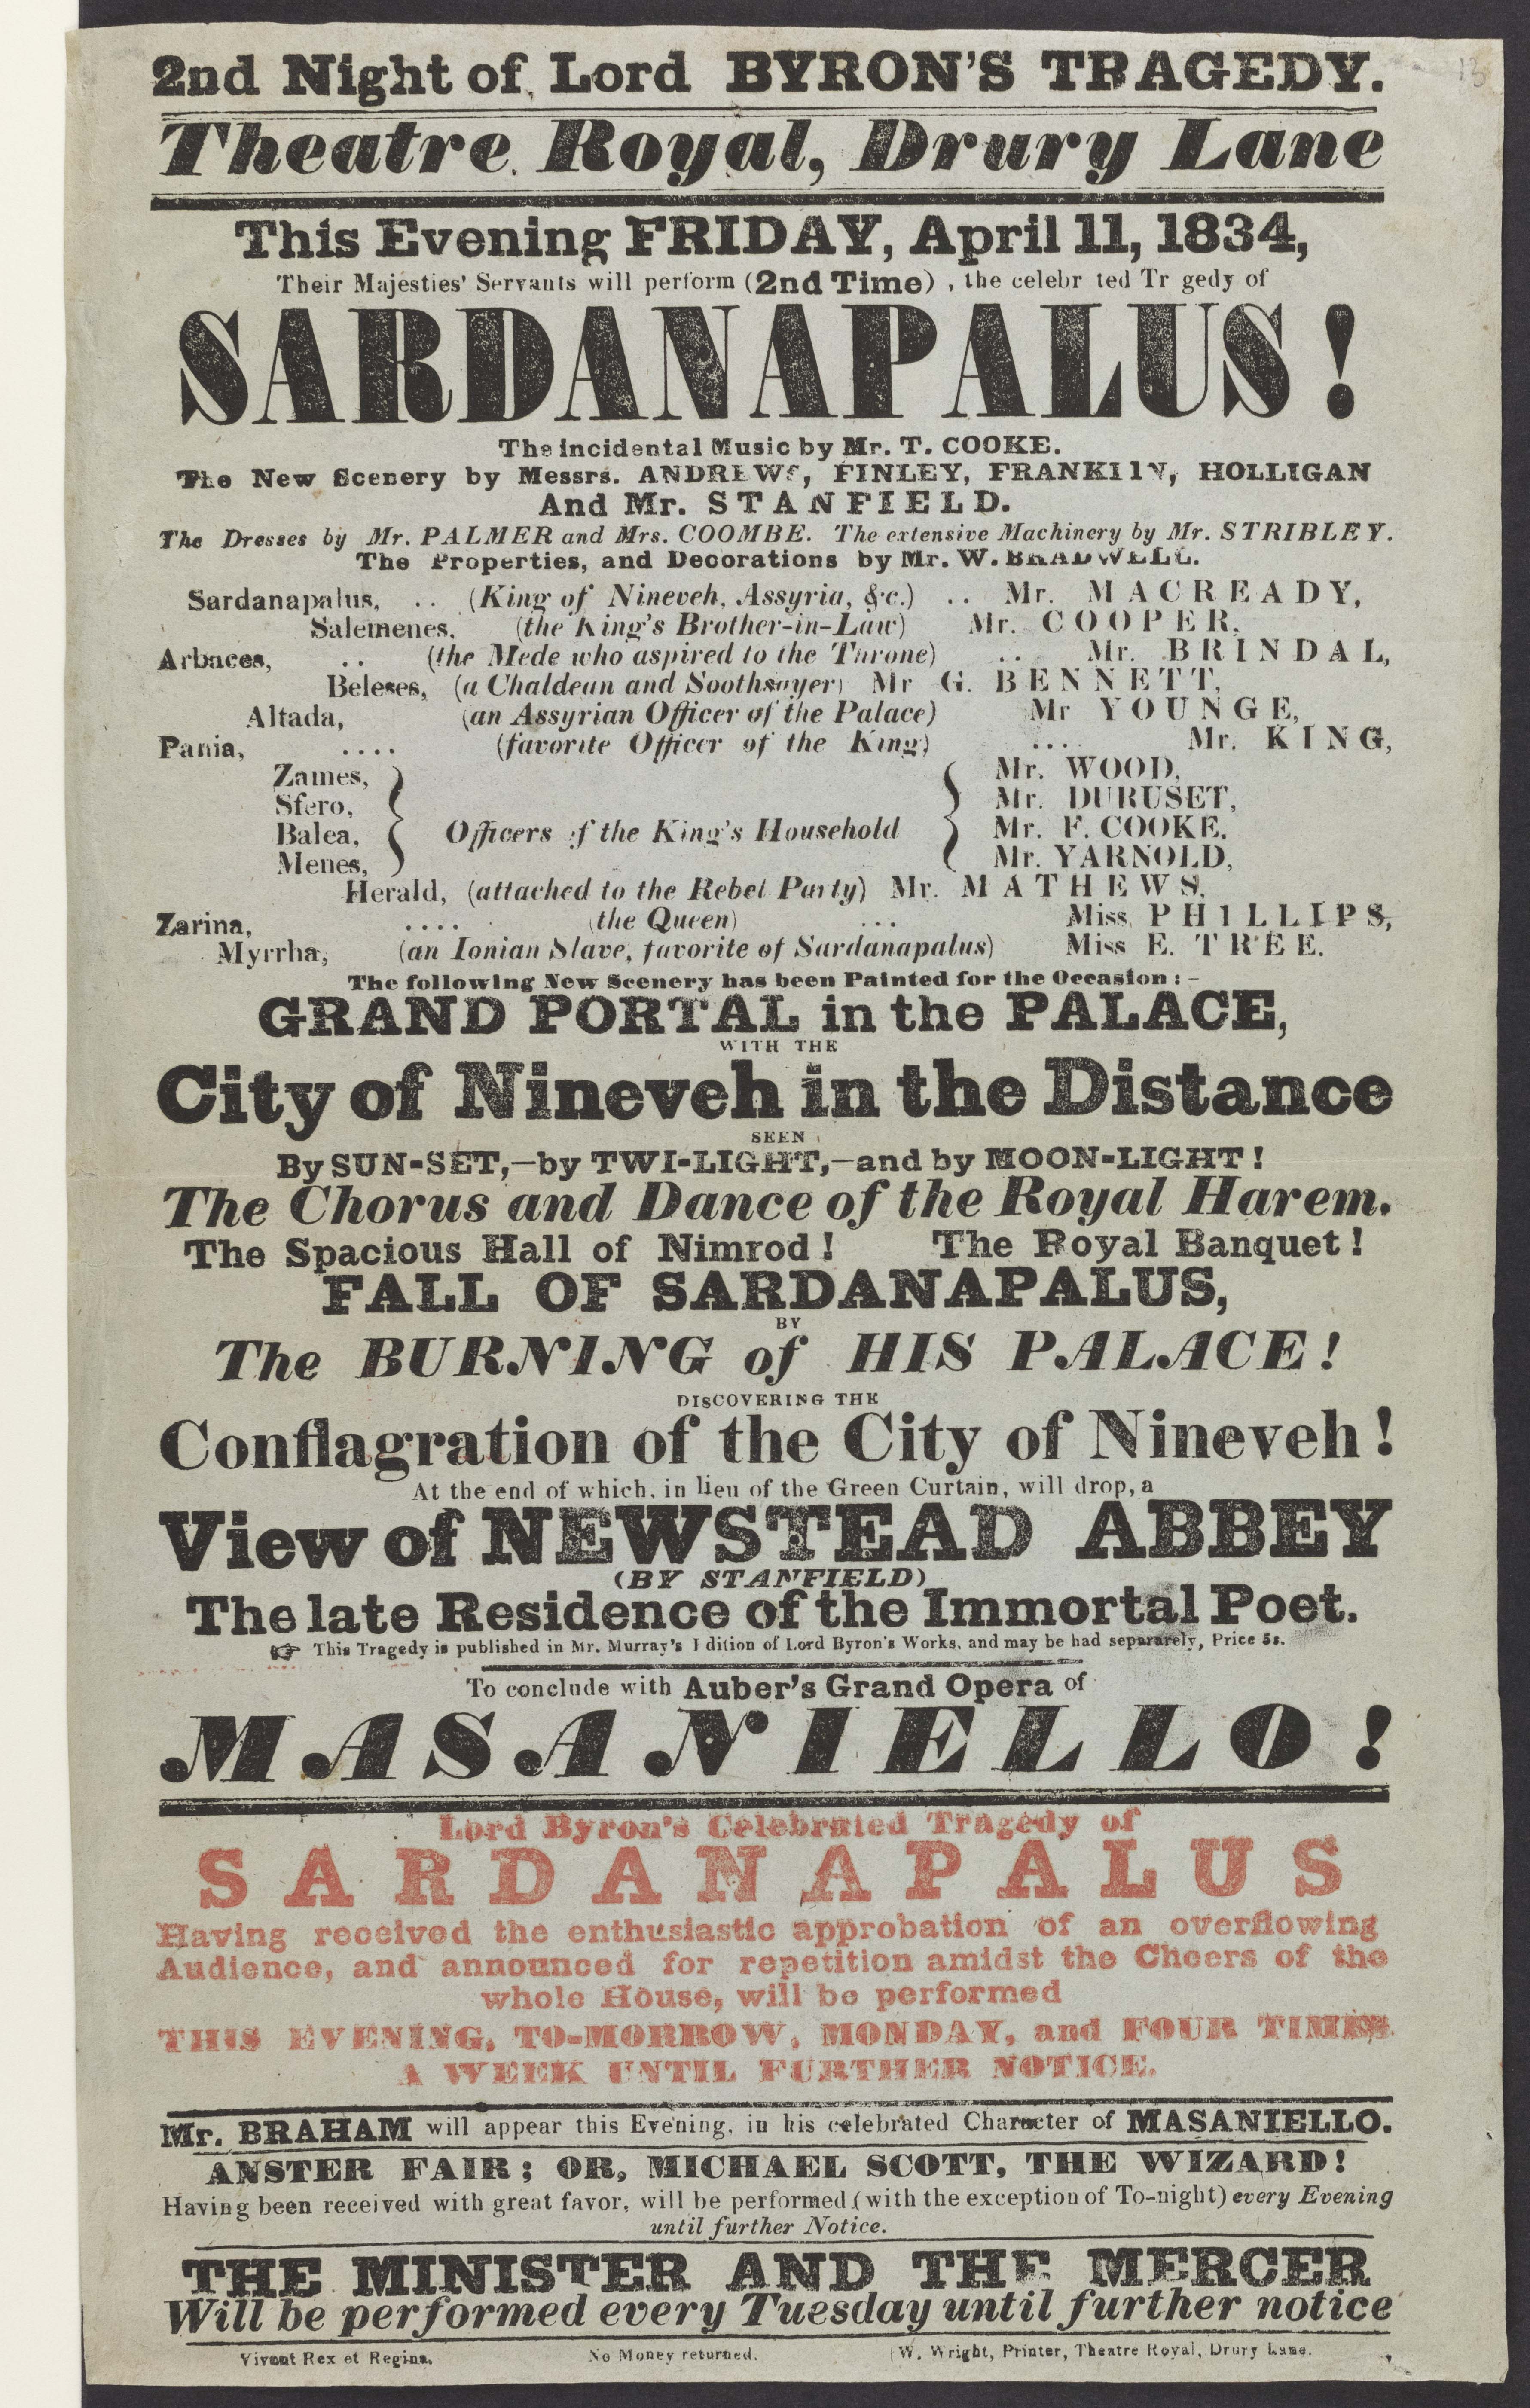 13
2nd Night of Lord BYRON'S TRAGEDY.
Theatre Royal, Drury Lane
This Evening FRIDAY, April 11, 1834,
Their Majesties' Servants will perform (2nd Time), the celebr ted Tr gedy of
SARDANAPALUS!
The incidental Music by Mr. T. COOKE.
The New Scenery by Messrs. ANDREWS, FINLEY, FRANKLIN, HOLLIGAN
And Mr. STANFIELD.
The Dresses by Mr. PALMER and Mrs. COOMBE. The extensive Machinery by Mr. STRIBLEY.
The Properties, and Decorations by Mr. W. BRADWELL.
Sardanapalus, .. (King of Nineveh, Assyria, &c.) .. Mr. MACREADY,
Salemenes, (the King's Brother-in-Law) Mr. COOPER,
Arbaces, .. (the Mede who aspired to the Throne) .. Mr. BRINDAL,
Beleses, (a Chaldean and Soothsayer) Mr G. BENNETT,
Altada, (an Assyrian Officer of the Palace) Mr YOUNGE,
Pania, .... (favorite Officer of the King) .... Mr. KING,
Zames, Mr. WOOD,
Sfero, Mr. DURUSET,
Balea, Officers of the King's Household Mr. F. COOKE,
Menes, Mr. YARNOLD,
Herald, (attached to the Rebel Party) Mr. MATHEWS,
Zarina, .... (the Queen) ... Miss PHILLIPS,
Myrrha, (an Ionian Slave, favorite of Sardanapalus) Miss E. TREE.
The following New Scenery has been Painted for the Occasion:-
GRAND PORTAL in the PALACE,
WITH THE
City of Nineveh in the Distance
SEEN
By SUN-SET,—by TWI-LIGHT,—and by MOON-LIGHT!
The Chorus and Dance of the Royal Harem.
The Spacious Hall of Nimrod! The Royal Banquet!
FALL OF SARDANAPALUS,
BY
The BURNING of HIS PALACE!
DISCOVERING THE
Conflagration of the City of Nineveh!
At the end of which, in lieu of the Green Curtain, will drop, a
View of NEWSTEAD ABBEY
(BY STANFIELD)
The late Residence of the Immortal Poet.
☞ This Tragedy is published in Mr. Murray's Edition of Lord Byron's Works, and may be had separately, Price 5s.
To conclude with Auber's Grand Opera of
MASANIELLO!
Lord Byron's Celebrated Tragedy of
SARDANAPALUS
Having received the enthusiastic approbation of an overflowing
Audience, and announced for repetition amidst the Cheers of the
whole House, will be performed
THIS EVENING, TO-MORROW, MONDAY, and FOUR TIMES
A WEEK UNTIL FURTHER NOTICE.
Mr. BRAHAM will appear this Evening, in his celebrated Character of MASANIELLO.
ANSTER FAIR; OR, MICHAEL SCOTT, THE WIZARD!
Having been received with great favor, will be performed (with the exception of To-night) every Evening
until further Notice.
THE MINISTER AND THE MERCER
Will be performed every Tuesday until further notice
Vivant Rex et Regina. No Money returned. (W. Wright, Printer, Theatre Royal, Drury Lane.